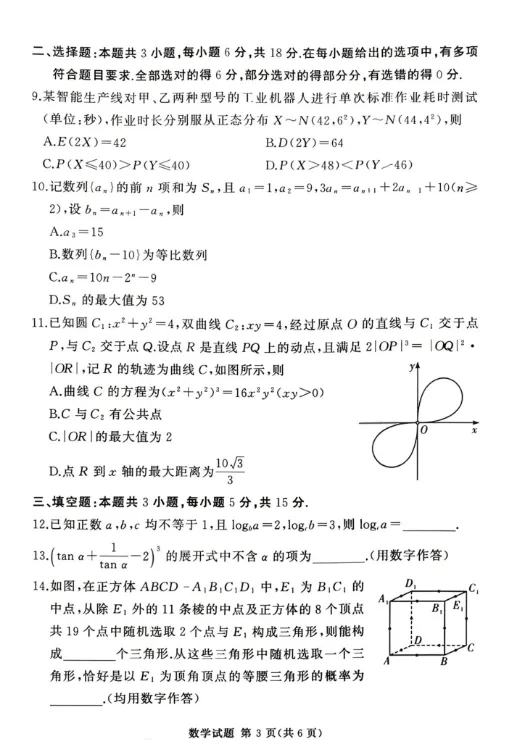 二、选择题:本题共 3 小题,每小题 6 分,共 18 分.在每小题给出的选项中,有多项
符合题目要求.全部选对的得 6 分,部分选对的得部分分,有选错的得 0 分.
9.某智能生产线对甲、乙两种型号的工业机器人进行单次标准作业耗时测试
(单位:秒),作业时长分别服从正态分布 X～N(42,6²),Y～N(44,4²),则
A.E(2X)=42 B.D(2Y)=64
C.P(X≤40)>P(Y≤40) D.P(X>48)<P(Y>46)
10.记数列{aₙ}的前 n 项和为 Sₙ,且 a₁=1,a₂=9,3aₙ=aₙ₊₁+2aₙ₋₁+10(n≥
2),设 bₙ=aₙ₊₁-aₙ,则
A.a₃=15
B.数列{bₙ-10}为等比数列
C.aₙ=10n-2ⁿ-9
D.Sₙ 的最大值为 53
11.已知圆 C₁:x²+y²=4,双曲线 C₂:xy=4,经过原点 O 的直线与 C₁ 交于点
P,与 C₂ 交于点 Q.设点 R 是直线 PQ 上的动点,且满足 2|OP|³=|OQ|²·
|OR|,记 R 的轨迹为曲线 C,如图所示,则
A.曲线 C 的方程为(x²+y²)³=16x²y²(xy>0)
B.C 与 C₂ 有公共点
C.|OR|的最大值为 2
D.点 R 到 x 轴的最大距离为10√3/3
y
O
x
三、填空题:本题共 3 小题,每小题 5 分,共 15 分.
12.已知正数 a,b,c 均不等于 1,且 log_b a=2,log_c b=3,则 log_c a=______.
13.(tan α+1/tan α-2)³ 的展开式中不含 α 的项为______.(用数字作答)
14.如图,在正方体 ABCD-A₁B₁C₁D₁ 中,E₁ 为 B₁C₁ 的
中点,从除 E₁ 外的 11 条棱的中点及正方体的 8 个顶点
共 19 个点中随机选取 2 个点与 E₁ 构成三角形,则能构
成______个三角形.从这些三角形中随机选取一个三
角形,恰好是以 E₁ 为顶角顶点的等腰三角形的概率为
______.(均用数字作答)
D₁
C₁
A₁
B₁
E₁
D
C
A
B
数学试题 第 3 页(共 6 页)